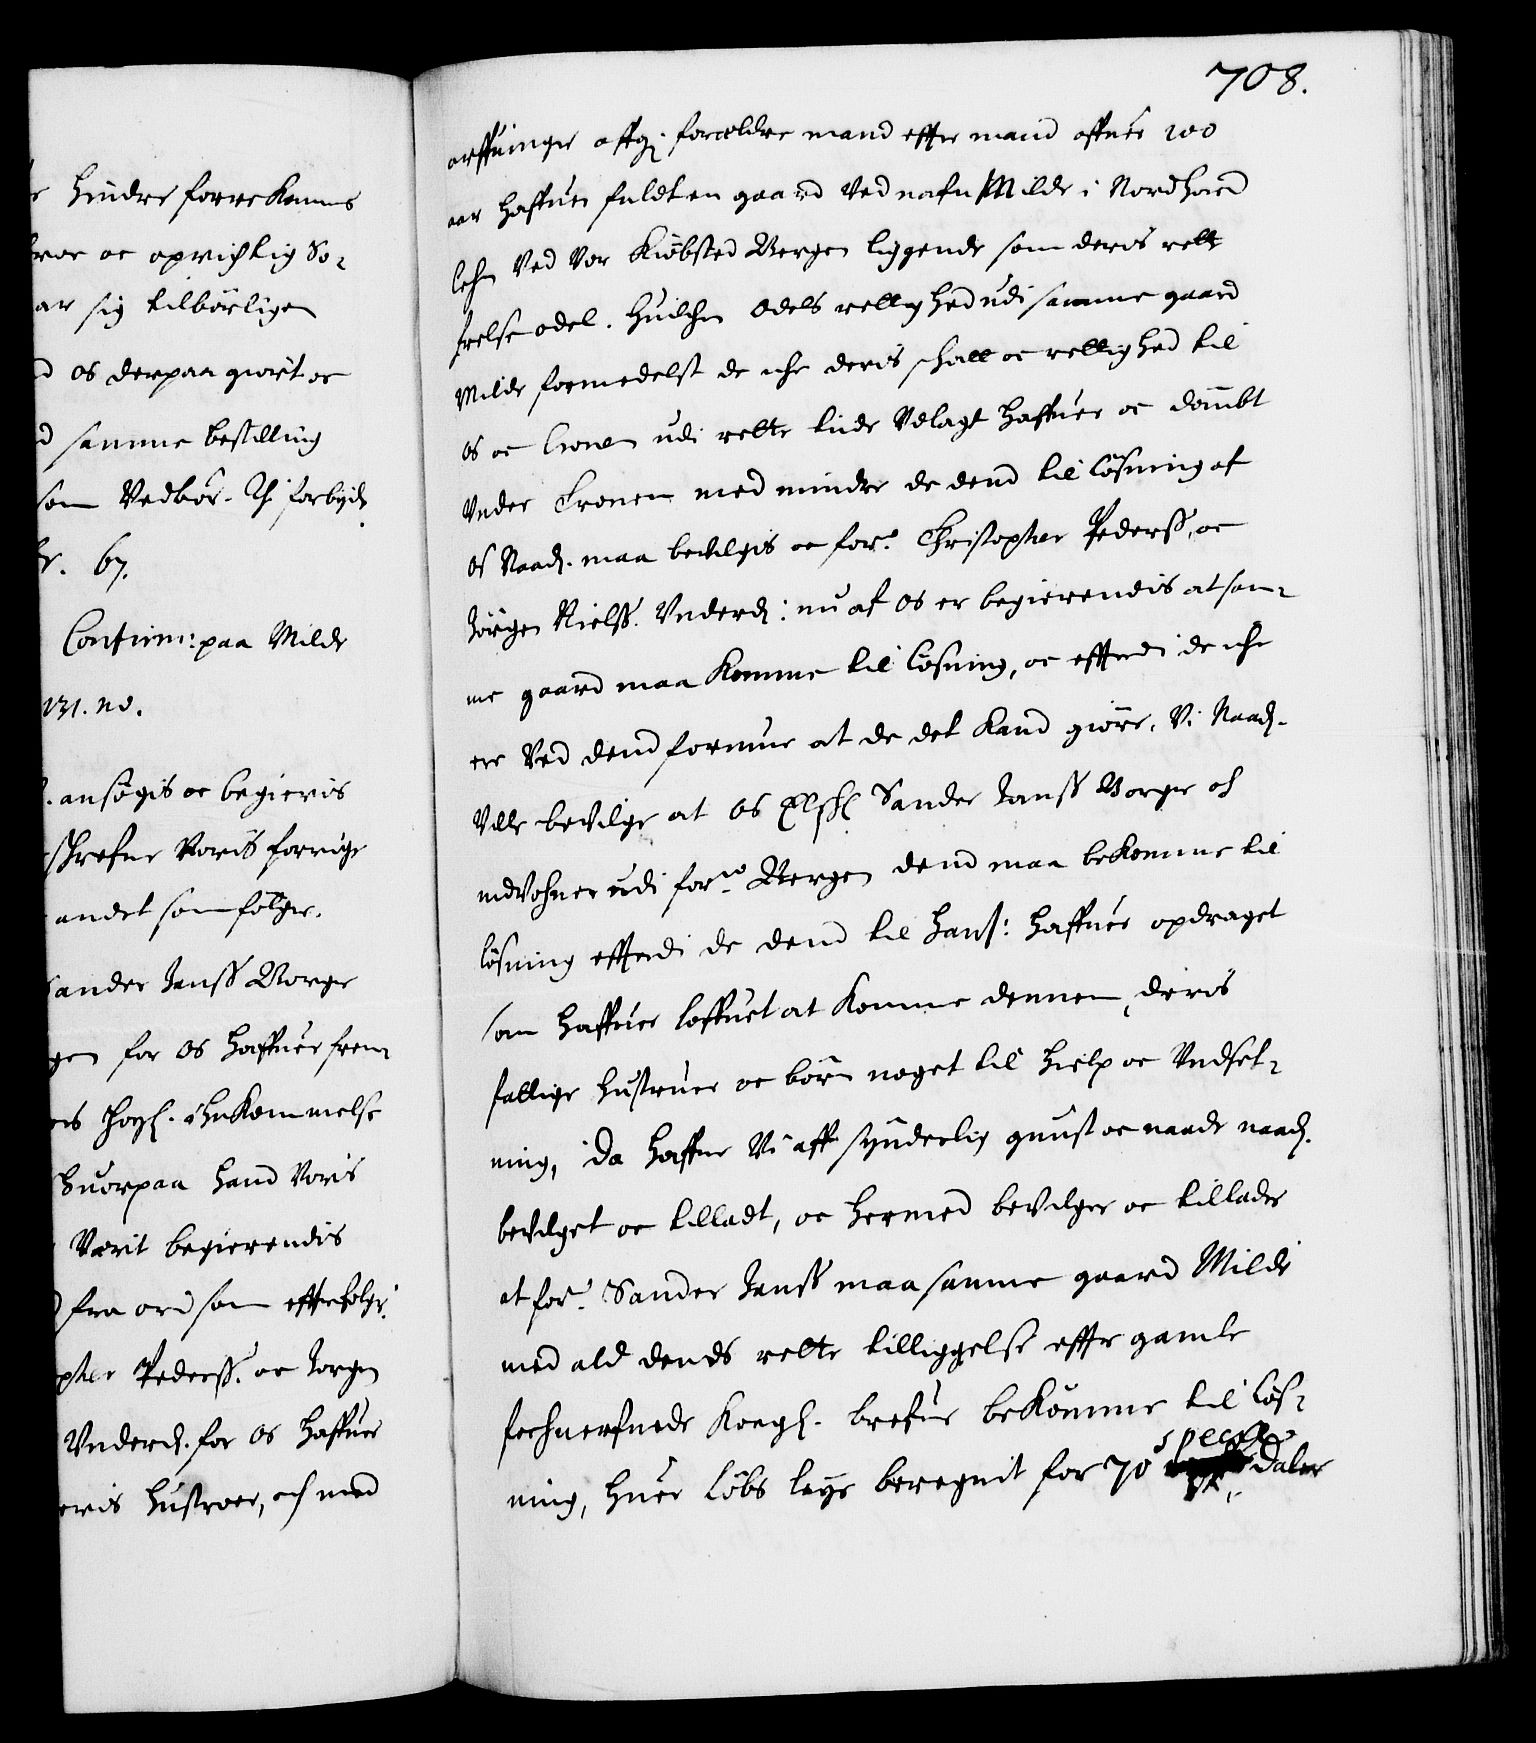 hindre forrekomme
oc oprichtig So-
ar sig tilbörligen
d os derpaa giort oc
d samme bestilling
som Vedbör. Thi forbyde
67.
Confirm: paa Milde
ansögis oc begieris
schrefne Voris forrige
andet som fölger.
Sander Janss Borger
gen for os haffuer frem-
Höyl. ihukommelse
huorpaa hand Voris
Verit begierendis
fra ord som effterfölger.
pher Pederss. oc Jörgen
Underd. for os haffuer
eris hustroer, oc med
708.
arffuinger affg: forældre mand effter mand offuer 200
aar haffuer fuldt en gaard Ved nafn Milde i Nordhord
lehn Ved Vor Kiöbsted Bergen liggende som deris rett
frelse odel. Huilchen Odels rettighed udi samme gaard
Milde formedelst de iche deris schatt oc rettighed til
os oc Cronen udi rette tide Udlagt haffuer oc dömbt
Under Cronen med mindre de dend til lösning af
os Naad. maa bevilgis oc for.ne Christopher Pederss. oc
Jörgen Nielss. Underd: nu af os er begierendis at sam-
me gaard maa komme til lösning, oc effterdi de iche
ere Ved dend formue at de det kand giöre, Vi Naad.
Ville bevilge at os Elskl Sander Janss Borger oc
indVohner udi for.ne Bergen dend maa bekomme til
lösning effterdi de dend til hans: haffuer opdraget
som haffuer loffuet at komme dennem, deris
fattige hustruer oc börn noget til hielp oc Undset-
ning, Da haffue Vi aff synderlig gunst oc naade naad.
bevilget oc tilladt, oc hermed bevilger oc tillader
at for.ne Sander Janss maa samme gaard Milde
med ald dends rette tilliggelse effter gamle
Kongl. brefue bekomme til lös-
ning, huer Löbs leye beregnit for 70 specie daler